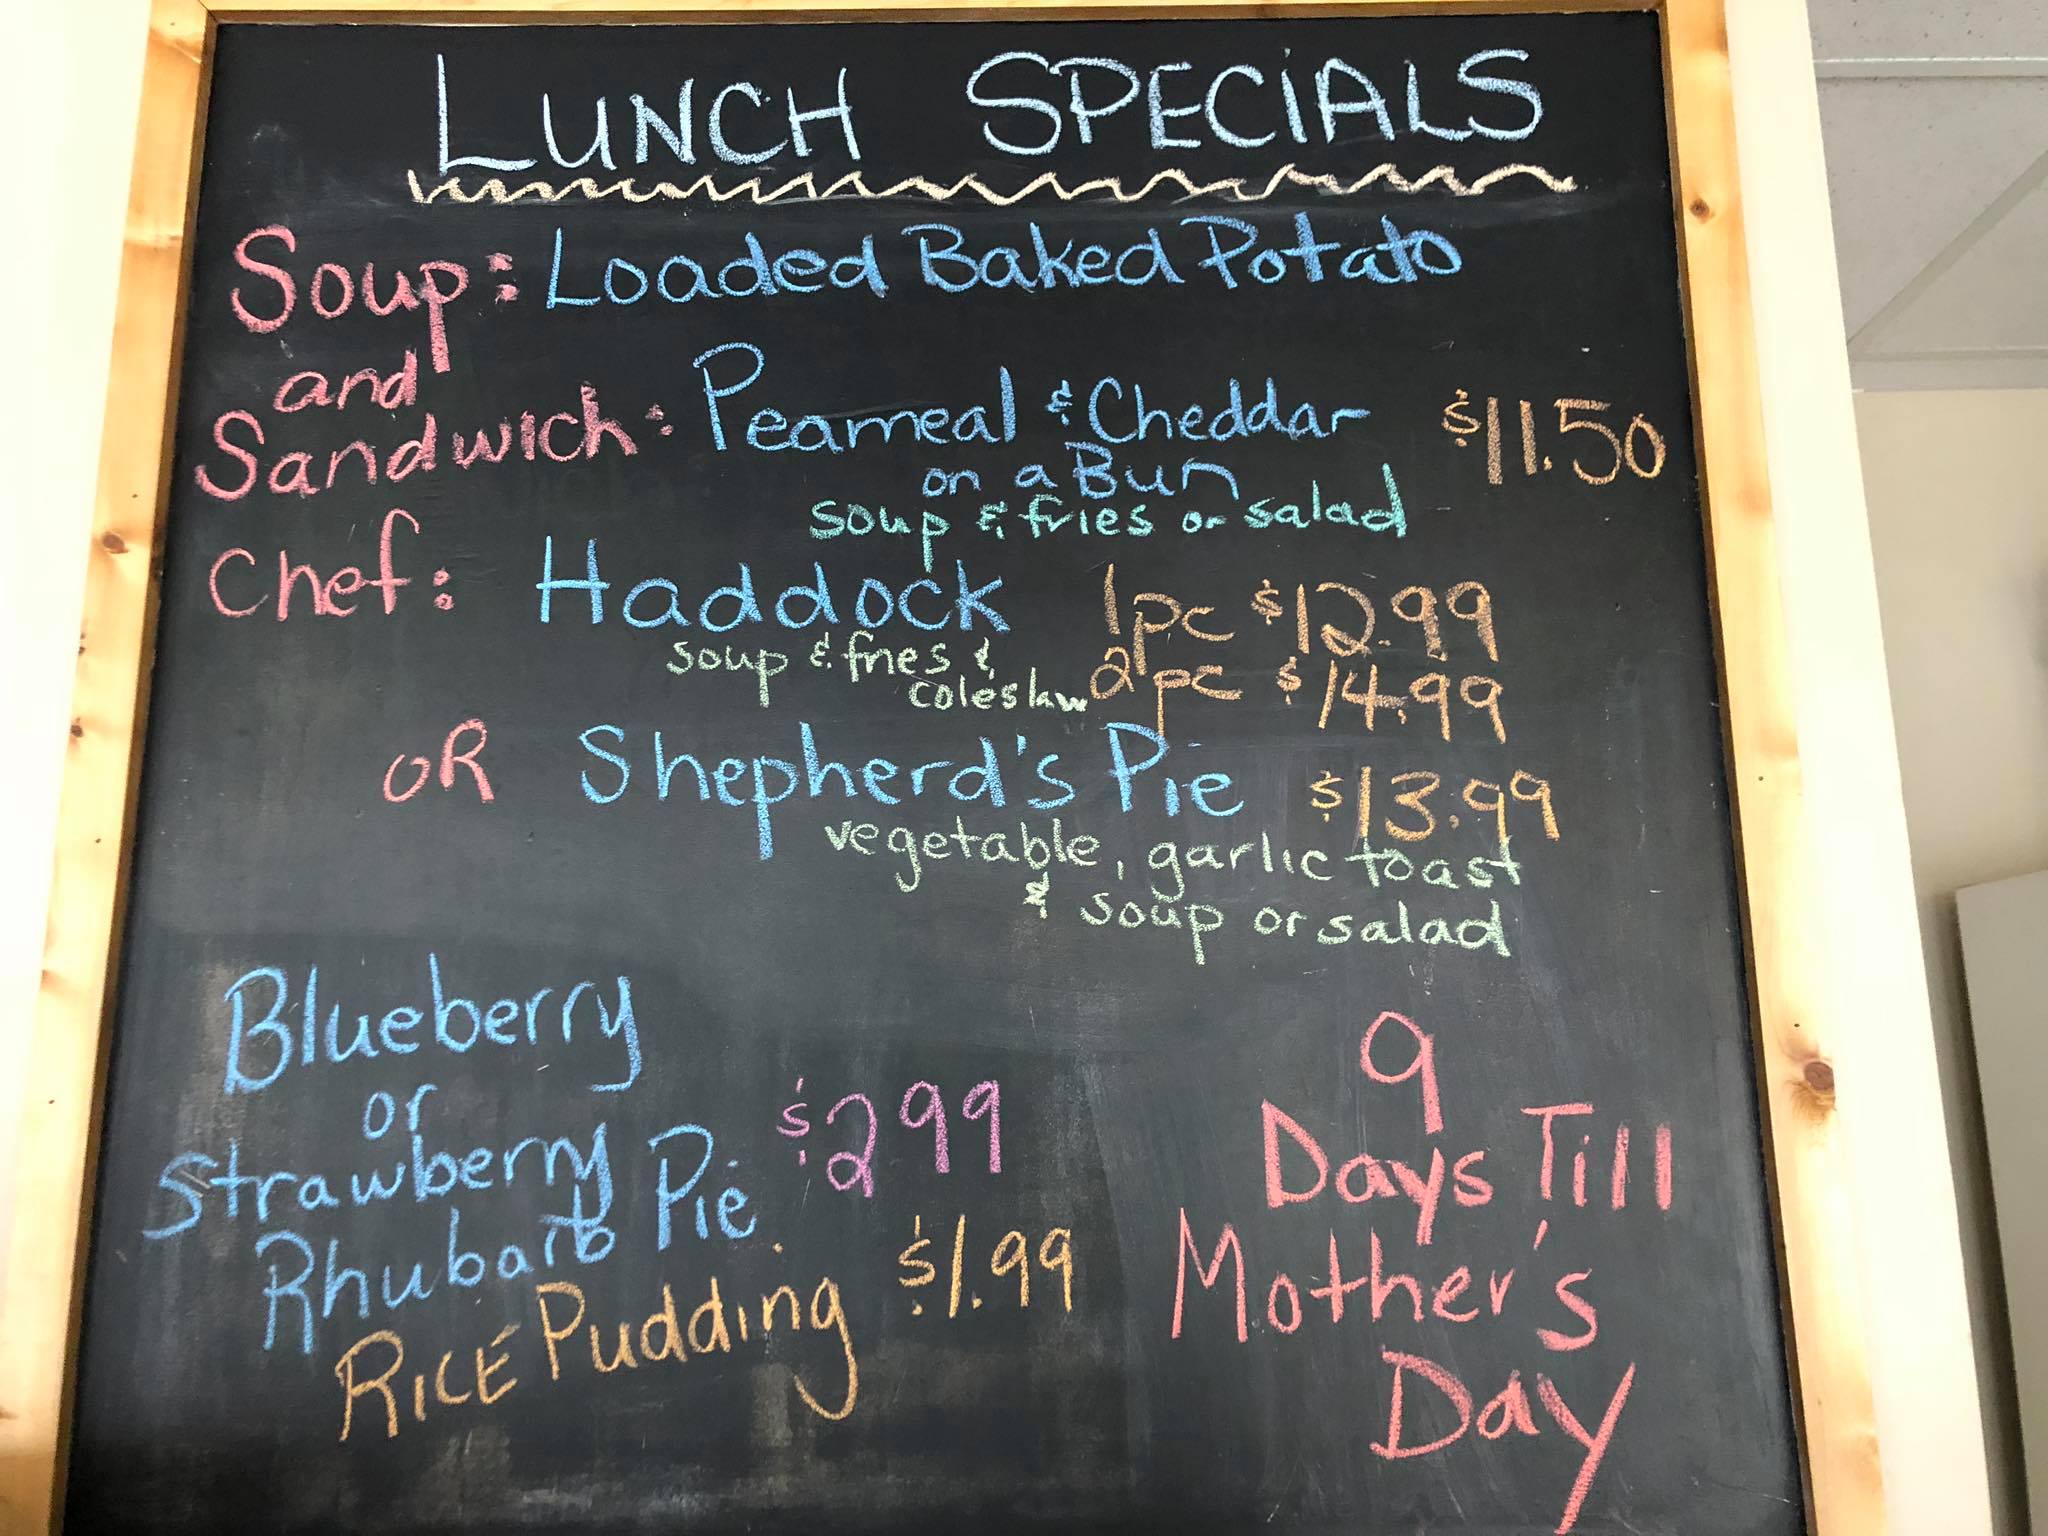 LUNCH SPECIALS
Soup: Loaded Baked Potato
and
Sandwich: Peameal & Cheddar $11.50
on a Bun
soup & fries or salad
Chef: Haddock 1pc $12.99
soup & fries &
coleslaw 2pc $14.99
OR Shepherd's Pie $13.99
vegetable, garlic toast
& soup or salad
Blueberry
or
Strawberry
Rhubarb Pie $2 99
RICE Pudding $1.99
9
Days Till
Mother's
Day